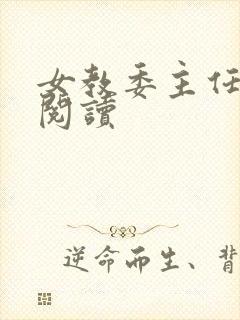 女教委主任
閱讀
逆命而生、背